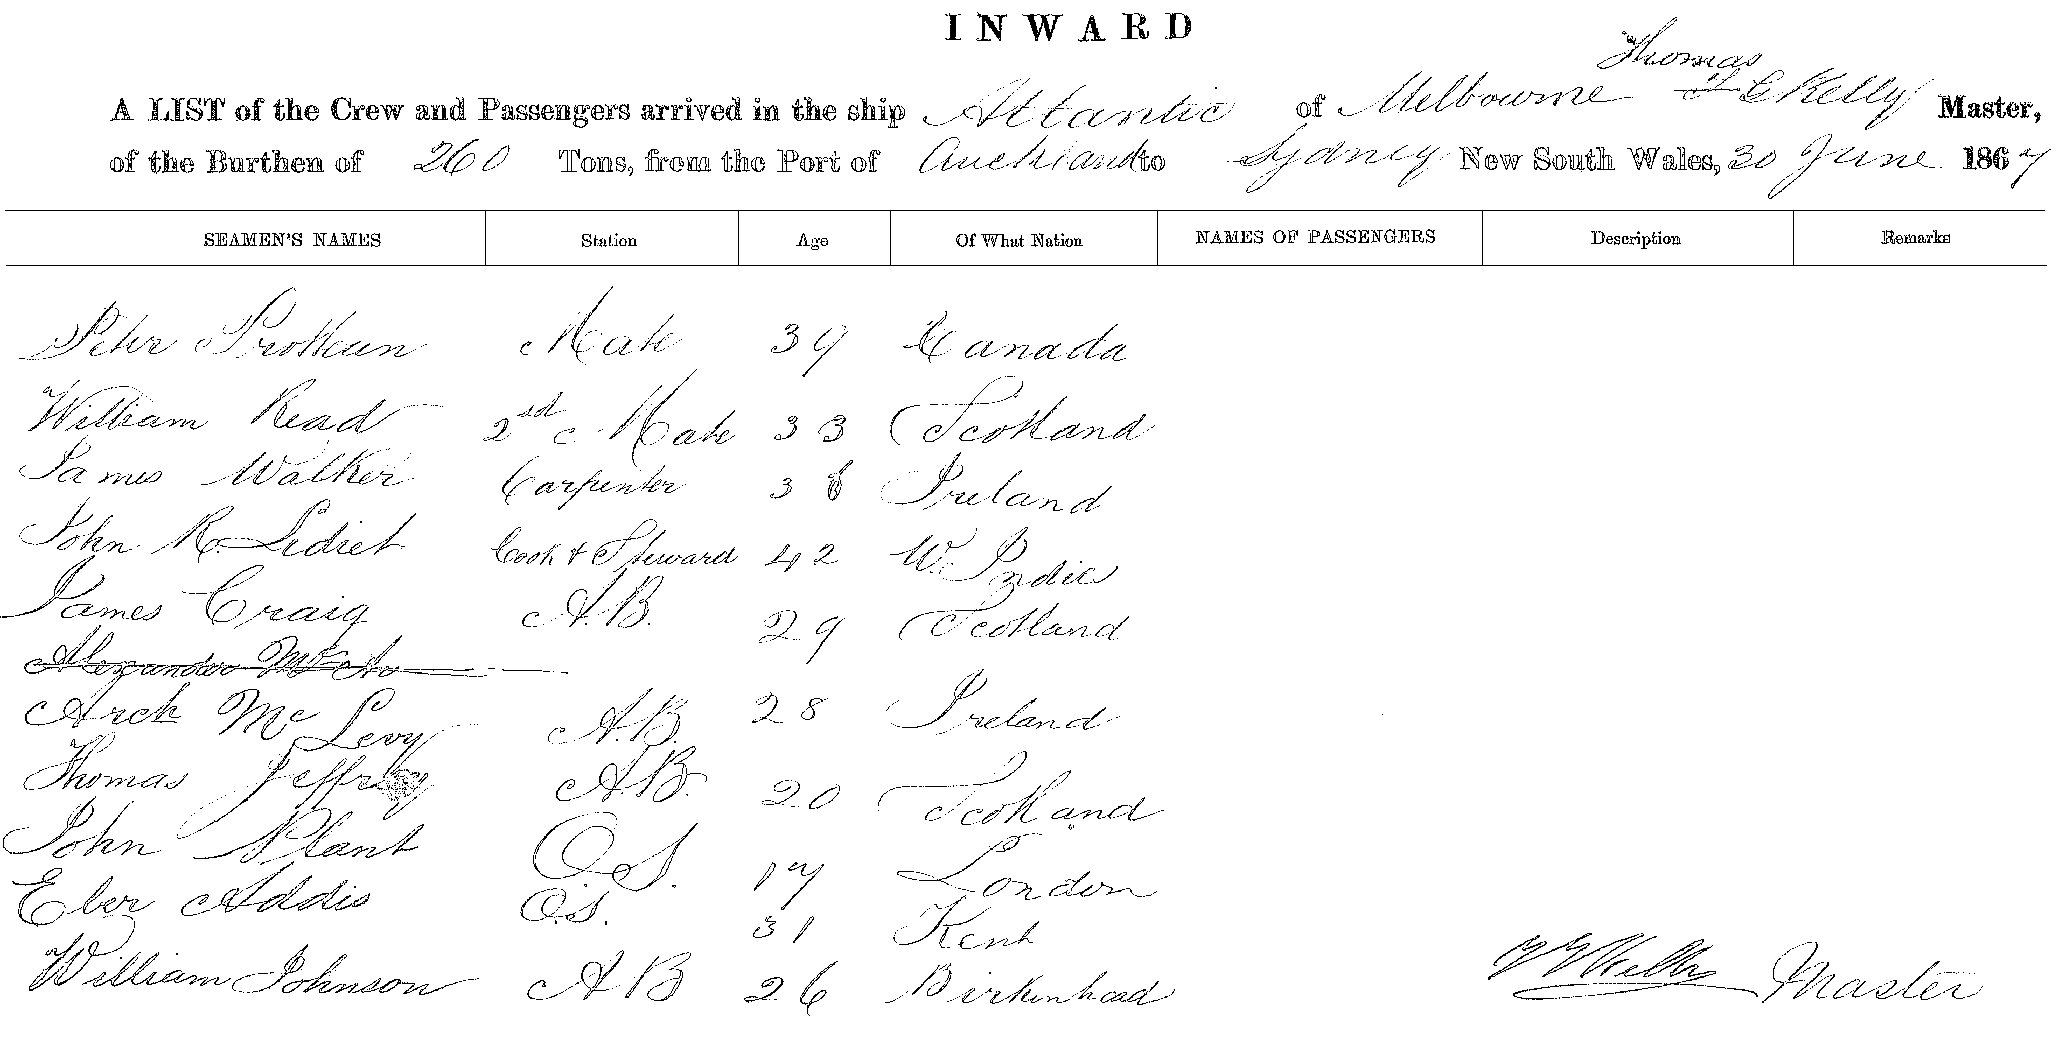 INWARD
Thomas
A LIST of the Crew and Passengers arrived in the ship Atlantic of Melbourne T G Kelly Master,
of the Burthen of 260 Tons, from the Port of Auckland to Sydney New South Wales, 30 June 1867
SEAMEN'S NAMES Station Age Of What Nation NAMES OF PASSENGERS Description Remarks
Peter Mate 39 Canada
William Read 2nd Mate 33 Scotland
James Walker Carpenter 38 Ireland
John R. Lidiet Cook & Steward 42 W. Indies
James Craig A.B. 29 Scotland
Alexander Mc
Arch Mc Levy A.B. 28 Ireland
Thomas Jeffrey A.B. 20 Scotland
John Plant O.S. 17 London
Eber Addis O.S. 31 Kent
William Johnson A B 26 Birkenhead
Kelly Master